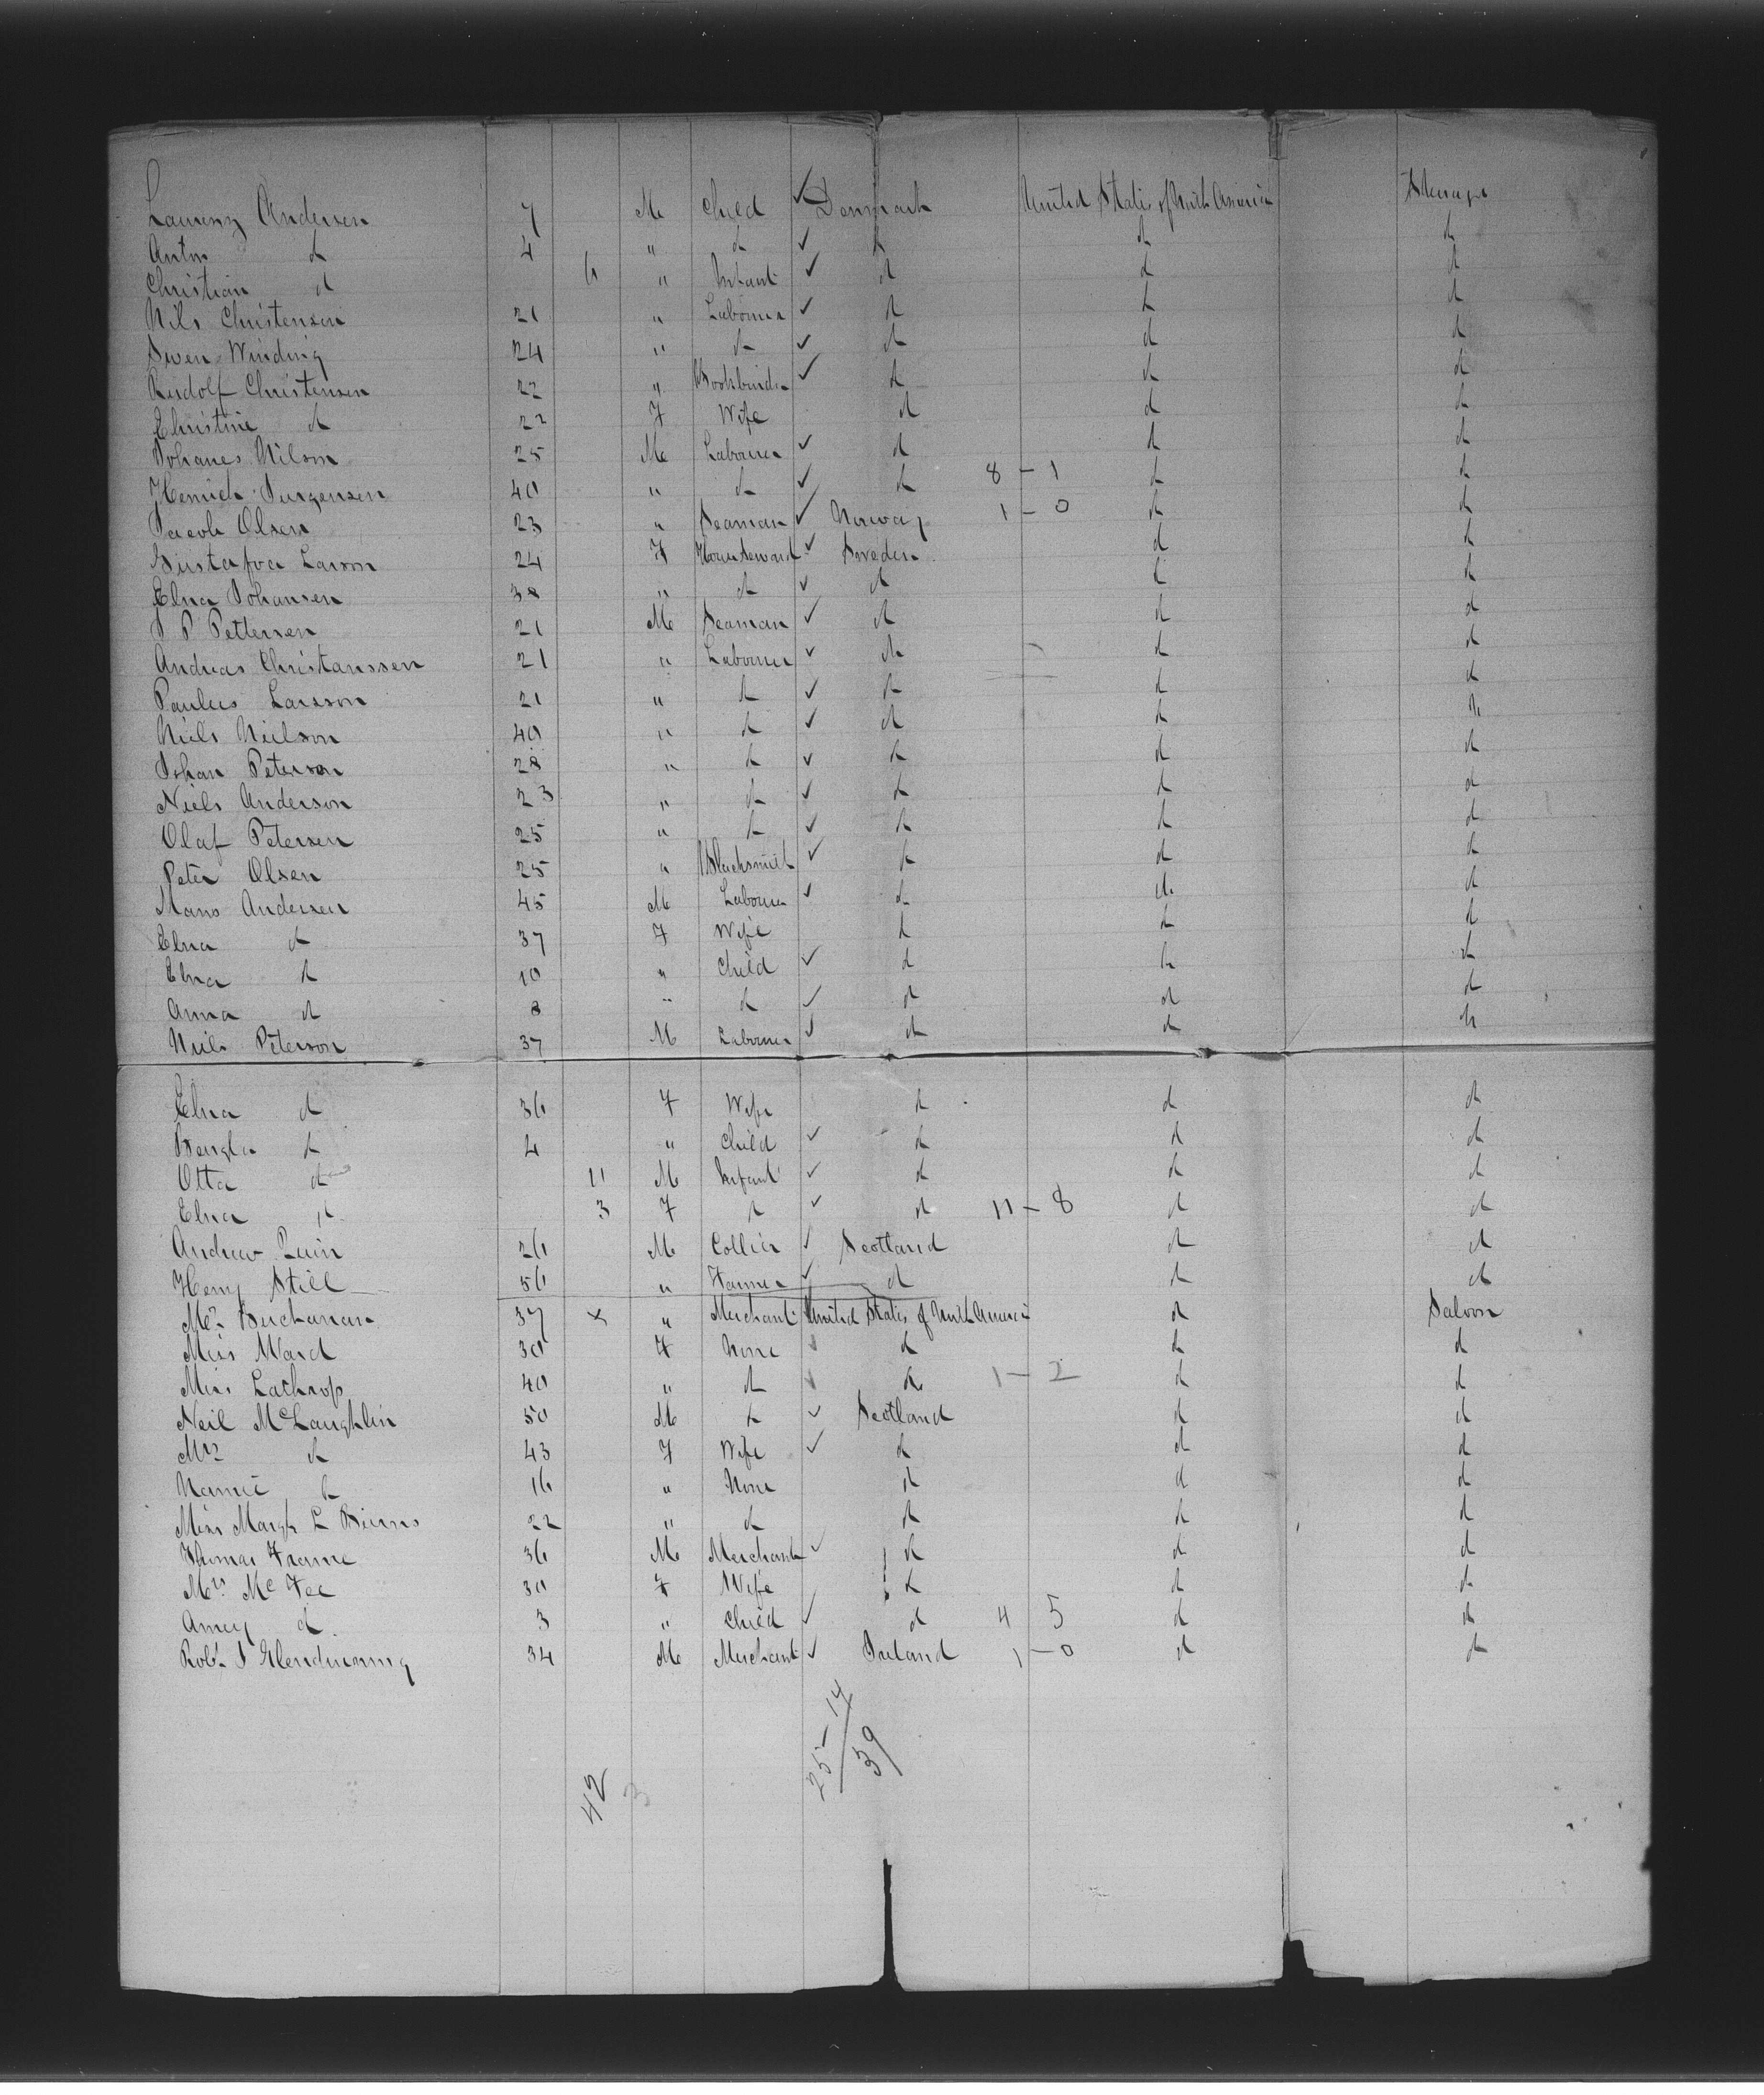 Laurenz Andersen 7 M Child ✓ Denmark United States of North America Steerage
Anton do 4 " do ✓ do do do
Christian do 6 " Infant ✓ do do do
Nils Christensen 21 " Labourer ✓ do do do
Swen Winding 24 " do ✓ do do do
Rudolf Christensen 22 " Bookbinder ✓ do do do
Christine do 22 F Wife do do do
Johanes Nilson 25 M Labourer ✓ do do do
Henrich Jurgensen 40 " do ✓ do 8 - 1 do do
Jacob Olsen 23 " Seaman ✓ Norway 1 - 0 do do
Gustafva Larson 24 F ✓ Sweden do do
Elna Johansen 38 " do ✓ do do do
J P Pettersen 21 M Seaman ✓ do do do
Andreas Christanssen 21 " Labourer ✓ do do do
Paulus Larsson 21 " do ✓ do do do
Niels Neilson 40 " do ✓ do do do
Johan Peterson 28 " do ✓ do do do
Niels Anderson 23 " do ✓ do do do
Olaf Petersen 25 " do ✓ do do do
Peter Olsen 25 " Blacksmith ✓ do do do
Mans Andersen 45 M Labourer ✓ do do do
Elna do 37 F Wife do do do
Elna do 10 " Child ✓ do do do
Anna do 8 " do ✓ do do do
Niels Peterson 37 M Labourer ✓ do do do
Elna do 36 F Wife do do do
Bengta do 4 " Child ✓ do do do
Otto do 11 M Infant ✓ do do do
Elna do 3 F do ✓ do 11 - 8 do do
Andrew 26 M Collier ✓ Scotland do do
Henry Still 56 " Farmer ✓ do do do
Mr Buchanan 37 x " Merchant United States of North America do Saloon
Miss Ward 30 F None ✓ do do do
Miss Lathrop 40 " do ✓ do 1 - 2 do do
Neil McLaughlin 50 M do ✓ Scotland do do
Mrs do 43 F Wife ✓ do do do
Nannie do 16 " None do do do
Miss Margt L Binns 22 " do do do do
Thomas Frame 36 M Merchant ✓ do do do
Mrs McFee 30 F Wife ✓ do do do
Amey do 3 " Child ✓ do 4 5 do do
Robt J Glendinning 34 M Merchant ✓ Ireland 1 - 0 do do
25 - 14
39
42
3